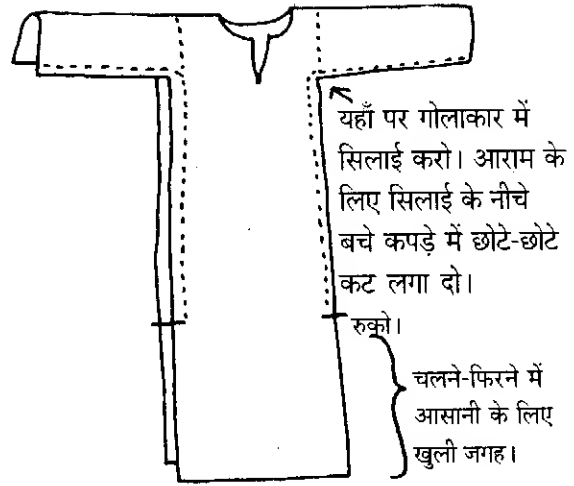 यहाँ पर गोलाकार में
सिलाई करो। आराम के
लिए सिलाई के नीचे
बचे कपड़े में छोटे-छोटे
कट लगा दो।
रुको।
चलने-फिरने में
आसानी के लिए
खुली जगह।